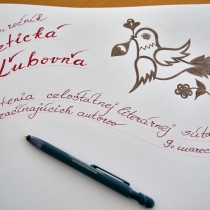 ročník
etická
Ľubovňa
tenia celoštátnej literárnej súťa
začínajúcich autorov
9. marec